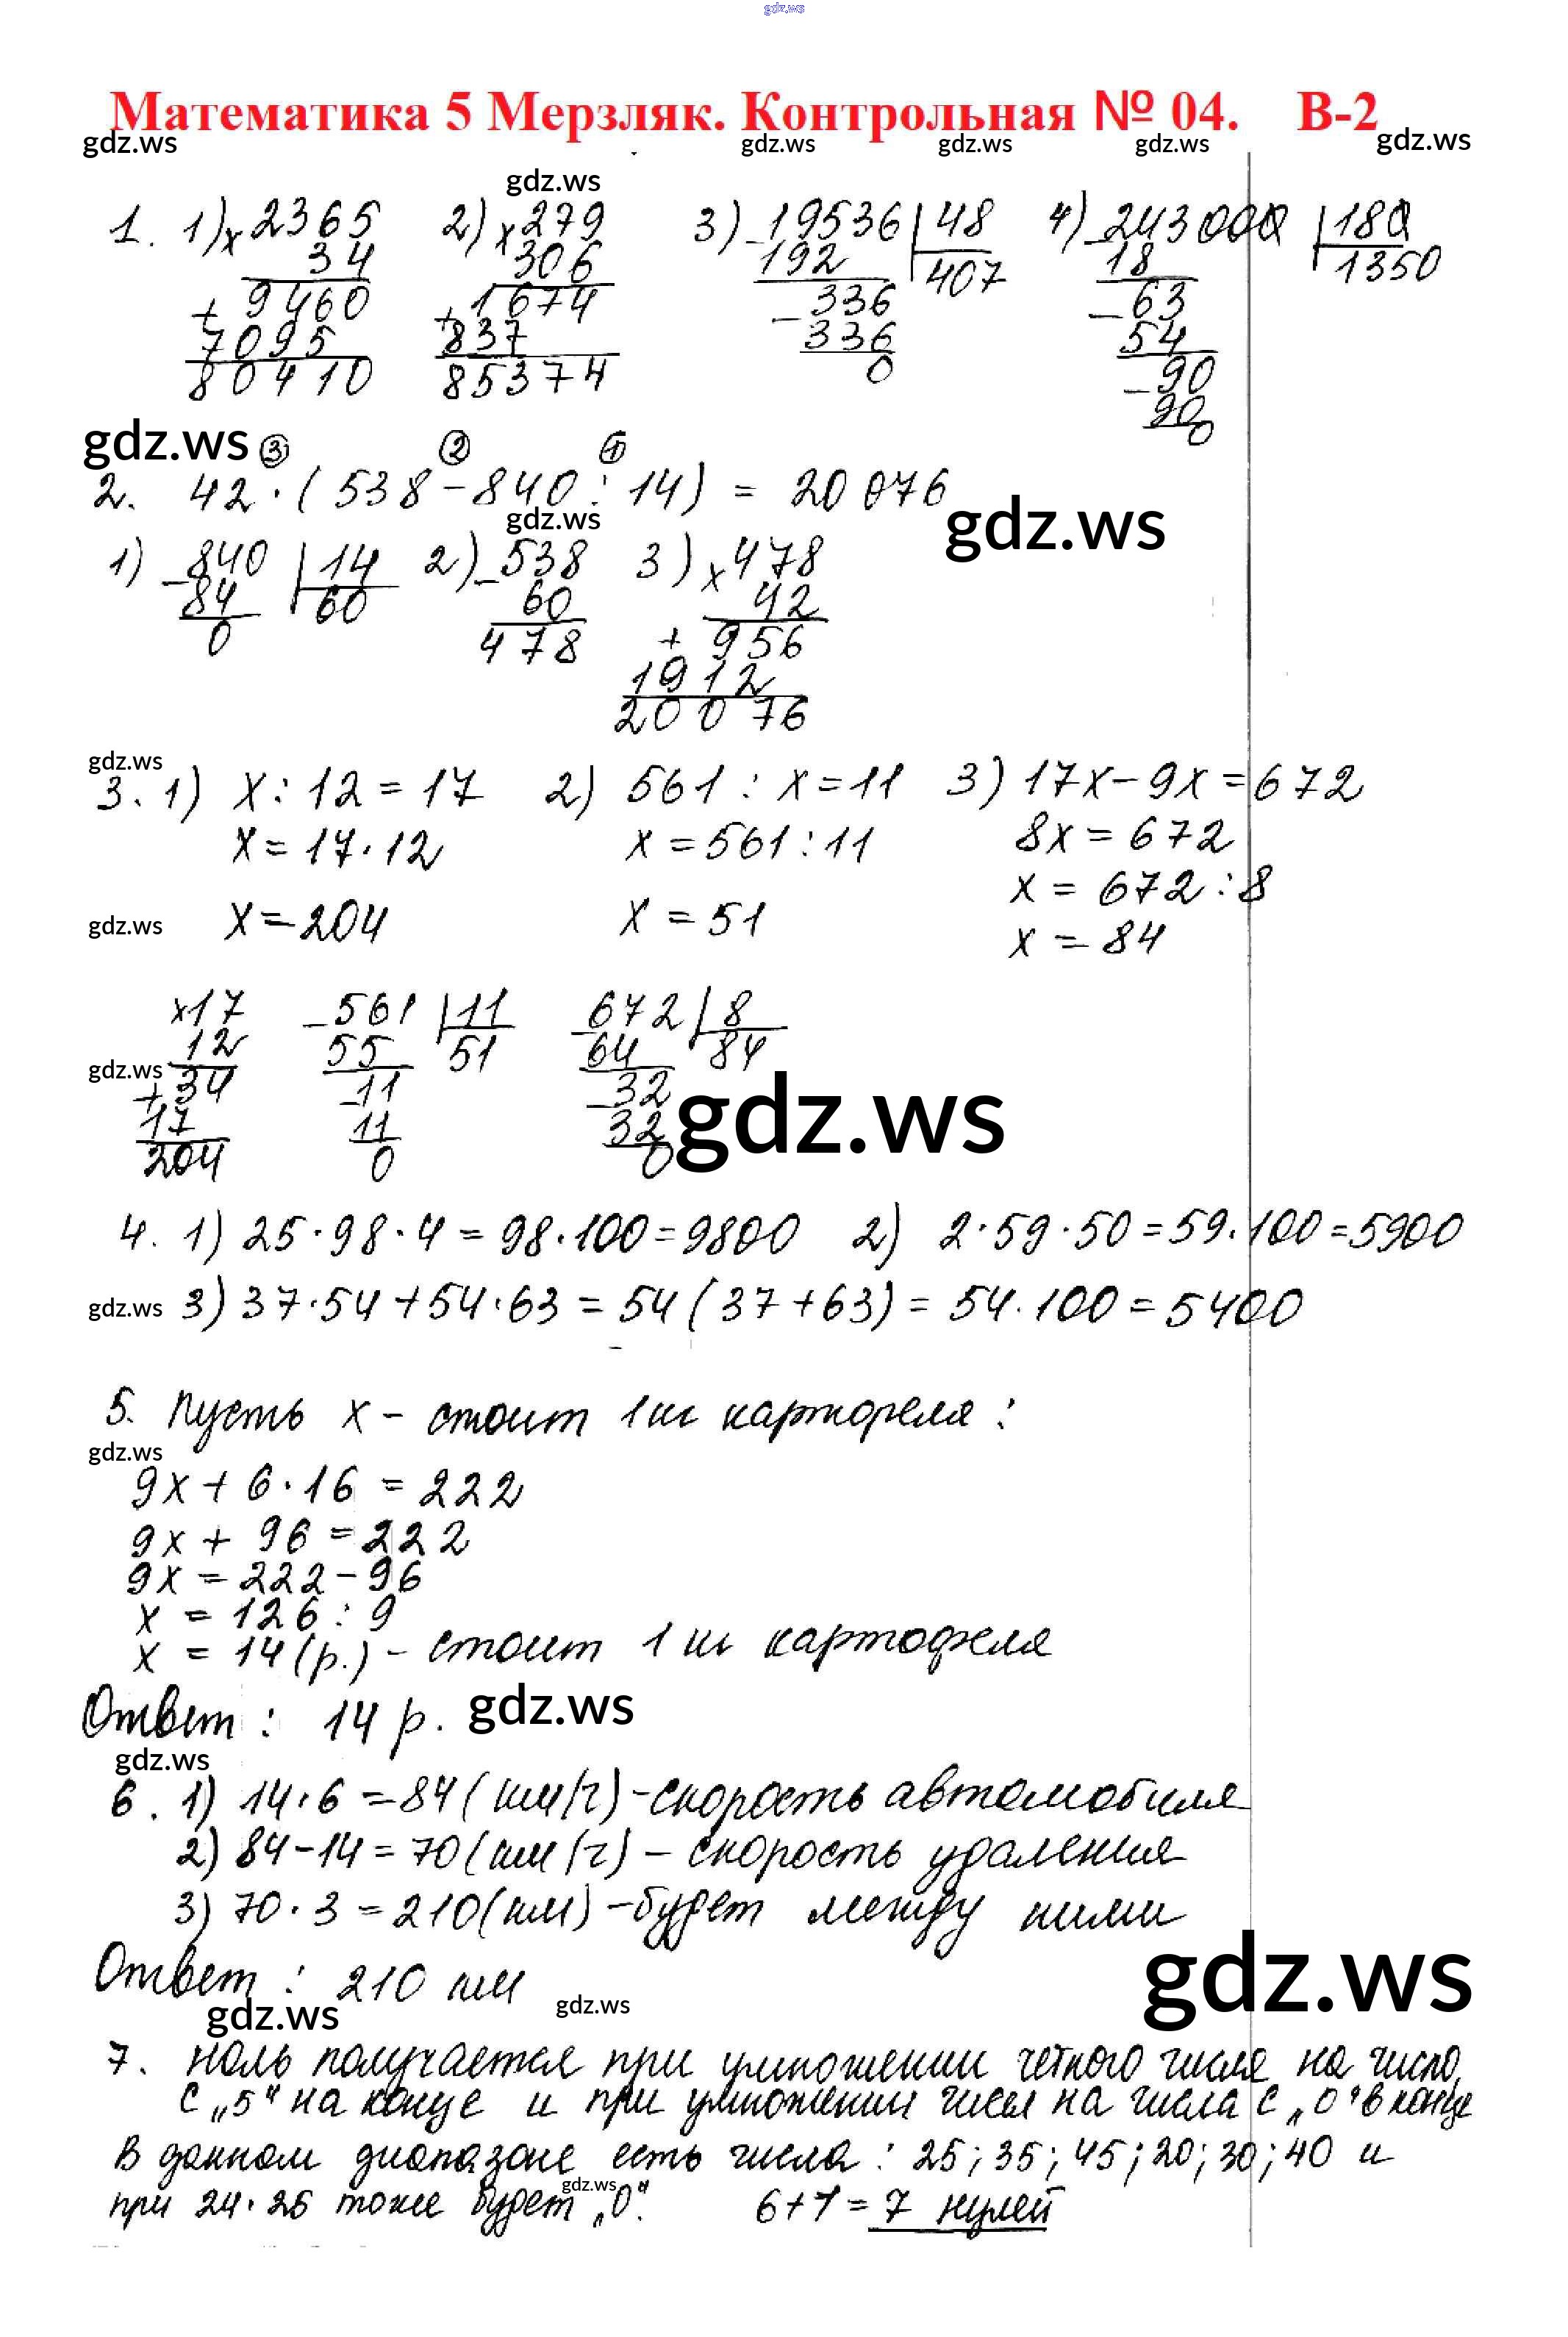 gdz.ws
Математика 5 Мерзляк. Контрольная № 04. В-2
gdz.ws gdz.ws gdz.ws gdz.ws gdz.ws
gdz.ws
1. 1) × 2365 2) × 279 3) - 19536 | 48 4) - 243000 | 180
34 306 192 407 18 1350
+ 9460 + 1674 - 336 - 63
7095 837 336 54
80410 85374 0 - 90
90
0
gdz.ws ③ ② ①
2. 42 · (538 - 840 : 14) = 20 076
gdz.ws gdz.ws
1) - 840 | 14 2) - 538 3) × 478
84 60 60 42
0 478 + 956
1912
20076
gdz.ws
3. 1) x : 12 = 17 2) 561 : x = 11 3) 17x - 9x = 672
x = 17 · 12 x = 561 : 11 8x = 672
x = 672 : 8
gdz.ws x = 204 x = 51 x = 84
× 17 - 561 | 11 - 672 | 8
12 55 51 64 84
gdz.ws + 34 - 11 - 32 gdz.ws
17 11 32
204 0 0
4. 1) 25 · 98 · 4 = 98 · 100 = 9800 2) 2 · 59 · 50 = 59 · 100 = 5900
gdz.ws 3) 37 · 54 + 54 · 63 = 54 (37 + 63) = 54 · 100 = 5400
5. Пусть x - стоит 1 кг картофеля :
gdz.ws
9x + 6 · 16 = 222
9x + 96 = 222
9x = 222 - 96
x = 126 : 9
x = 14 (р.) - стоит 1 кг картофеля
Ответ : 14 р. gdz.ws
gdz.ws
6. 1) 14 · 6 = 84 (км/ч) - скорость автомобиля
2) 84 - 14 = 70 (км/ч) - скорость удаления
3) 70 · 3 = 210 (км) - будет между ними
Ответ : 210 км gdz.ws
gdz.ws gdz.ws
7. ноль получается при умножении четного числа на число,
с „5" на конце и при умножении чисел на числа с „0" в конце
В данном диапазоне есть числа : 25; 35; 45; 20; 30; 40 и
gdz.ws
при 24 · 25 тоже будет „0". 6 + 1 = 7 нулей